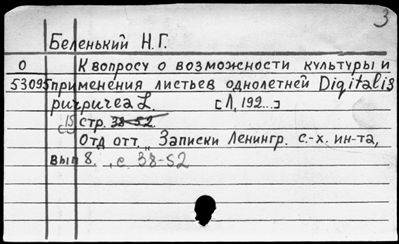 3
Беленький Н.Г.
О К вопросу о возможности культуры и
53095 применения листьев однолетней Digitalis
purpurea L. [Л, 192...]
15 стр. 38-52.
Отд отт. „Записки Ленингр. с.-х. ин-та,
вып 8. , с. 38-52